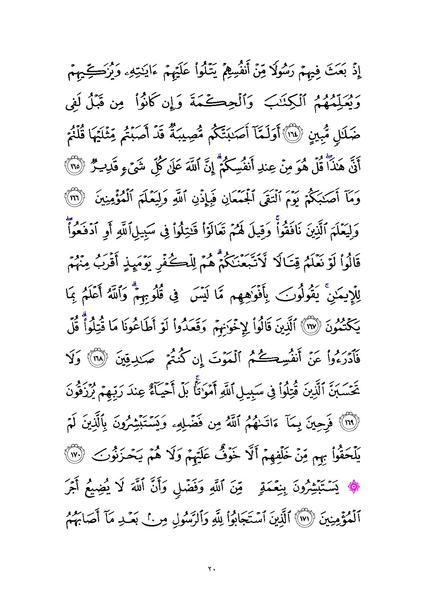 إِذْ بَعَثَ فِيهِمْ رَسُولًا مِّنْ أَنفُسِهِمْ يَتْلُوا۟ عَلَيْهِمْ ءَايَـٰتِهِۦ وَيُزَكِّيهِمْ
وَيُعَلِّمُهُمُ ٱلْكِتَـٰبَ وَٱلْحِكْمَةَ وَإِن كَانُوا۟ مِن قَبْلُ لَفِى
ضَلَـٰلٍ مُّبِينٍ ۝١٦٤ أَوَلَمَّآ أَصَـٰبَتْكُم مُّصِيبَةٌ قَدْ أَصَبْتُم مِّثْلَيْهَا قُلْتُمْ
أَنَّىٰ هَـٰذَا ۖ قُلْ هُوَ مِنْ عِندِ أَنفُسِكُمْ ۗ إِنَّ ٱللَّهَ عَلَىٰ كُلِّ شَىْءٍ قَدِيرٌ ۝١٦٥
وَمَآ أَصَـٰبَكُمْ يَوْمَ ٱلْتَقَى ٱلْجَمْعَانِ فَبِإِذْنِ ٱللَّهِ وَلِيَعْلَمَ ٱلْمُؤْمِنِينَ ۝١٦٦
وَلِيَعْلَمَ ٱلَّذِينَ نَافَقُوا۟ ۚ وَقِيلَ لَهُمْ تَعَالَوْا۟ قَـٰتِلُوا۟ فِى سَبِيلِ ٱللَّهِ أَوِ ٱدْفَعُوا۟ ۖ
قَالُوا۟ لَوْ نَعْلَمُ قِتَالًا لَّٱتَّبَعْنَـٰكُمْ ۗ هُمْ لِلْكُفْرِ يَوْمَئِذٍ أَقْرَبُ مِنْهُمْ
لِلْإِيمَـٰنِ ۚ يَقُولُونَ بِأَفْوَٰهِهِم مَّا لَيْسَ فِى قُلُوبِهِمْ ۗ وَٱللَّهُ أَعْلَمُ بِمَا
يَكْتُمُونَ ۝١٦٧ ٱلَّذِينَ قَالُوا۟ لِإِخْوَٰنِهِمْ وَقَعَدُوا۟ لَوْ أَطَاعُونَا مَا قُتِلُوا۟ ۗ قُلْ
فَٱدْرَءُوا۟ عَنْ أَنفُسِكُمُ ٱلْمَوْتَ إِن كُنتُمْ صَـٰدِقِينَ ۝١٦٨ وَلَا
تَحْسَبَنَّ ٱلَّذِينَ قُتِلُوا۟ فِى سَبِيلِ ٱللَّهِ أَمْوَٰتًۢا ۚ بَلْ أَحْيَآءٌ عِندَ رَبِّهِمْ يُرْزَقُونَ
۝١٦٩ فَرِحِينَ بِمَآ ءَاتَىٰهُمُ ٱللَّهُ مِن فَضْلِهِۦ وَيَسْتَبْشِرُونَ بِٱلَّذِينَ لَمْ
يَلْحَقُوا۟ بِهِم مِّنْ خَلْفِهِمْ أَلَّا خَوْفٌ عَلَيْهِمْ وَلَا هُمْ يَحْزَنُونَ ۝١٧٠
۞ يَسْتَبْشِرُونَ بِنِعْمَةٍ مِّنَ ٱللَّهِ وَفَضْلٍ وَأَنَّ ٱللَّهَ لَا يُضِيعُ أَجْرَ
ٱلْمُؤْمِنِينَ ۝١٧١ ٱلَّذِينَ ٱسْتَجَابُوا۟ لِلَّهِ وَٱلرَّسُولِ مِنۢ بَعْدِ مَآ أَصَابَهُمُ
٢٠